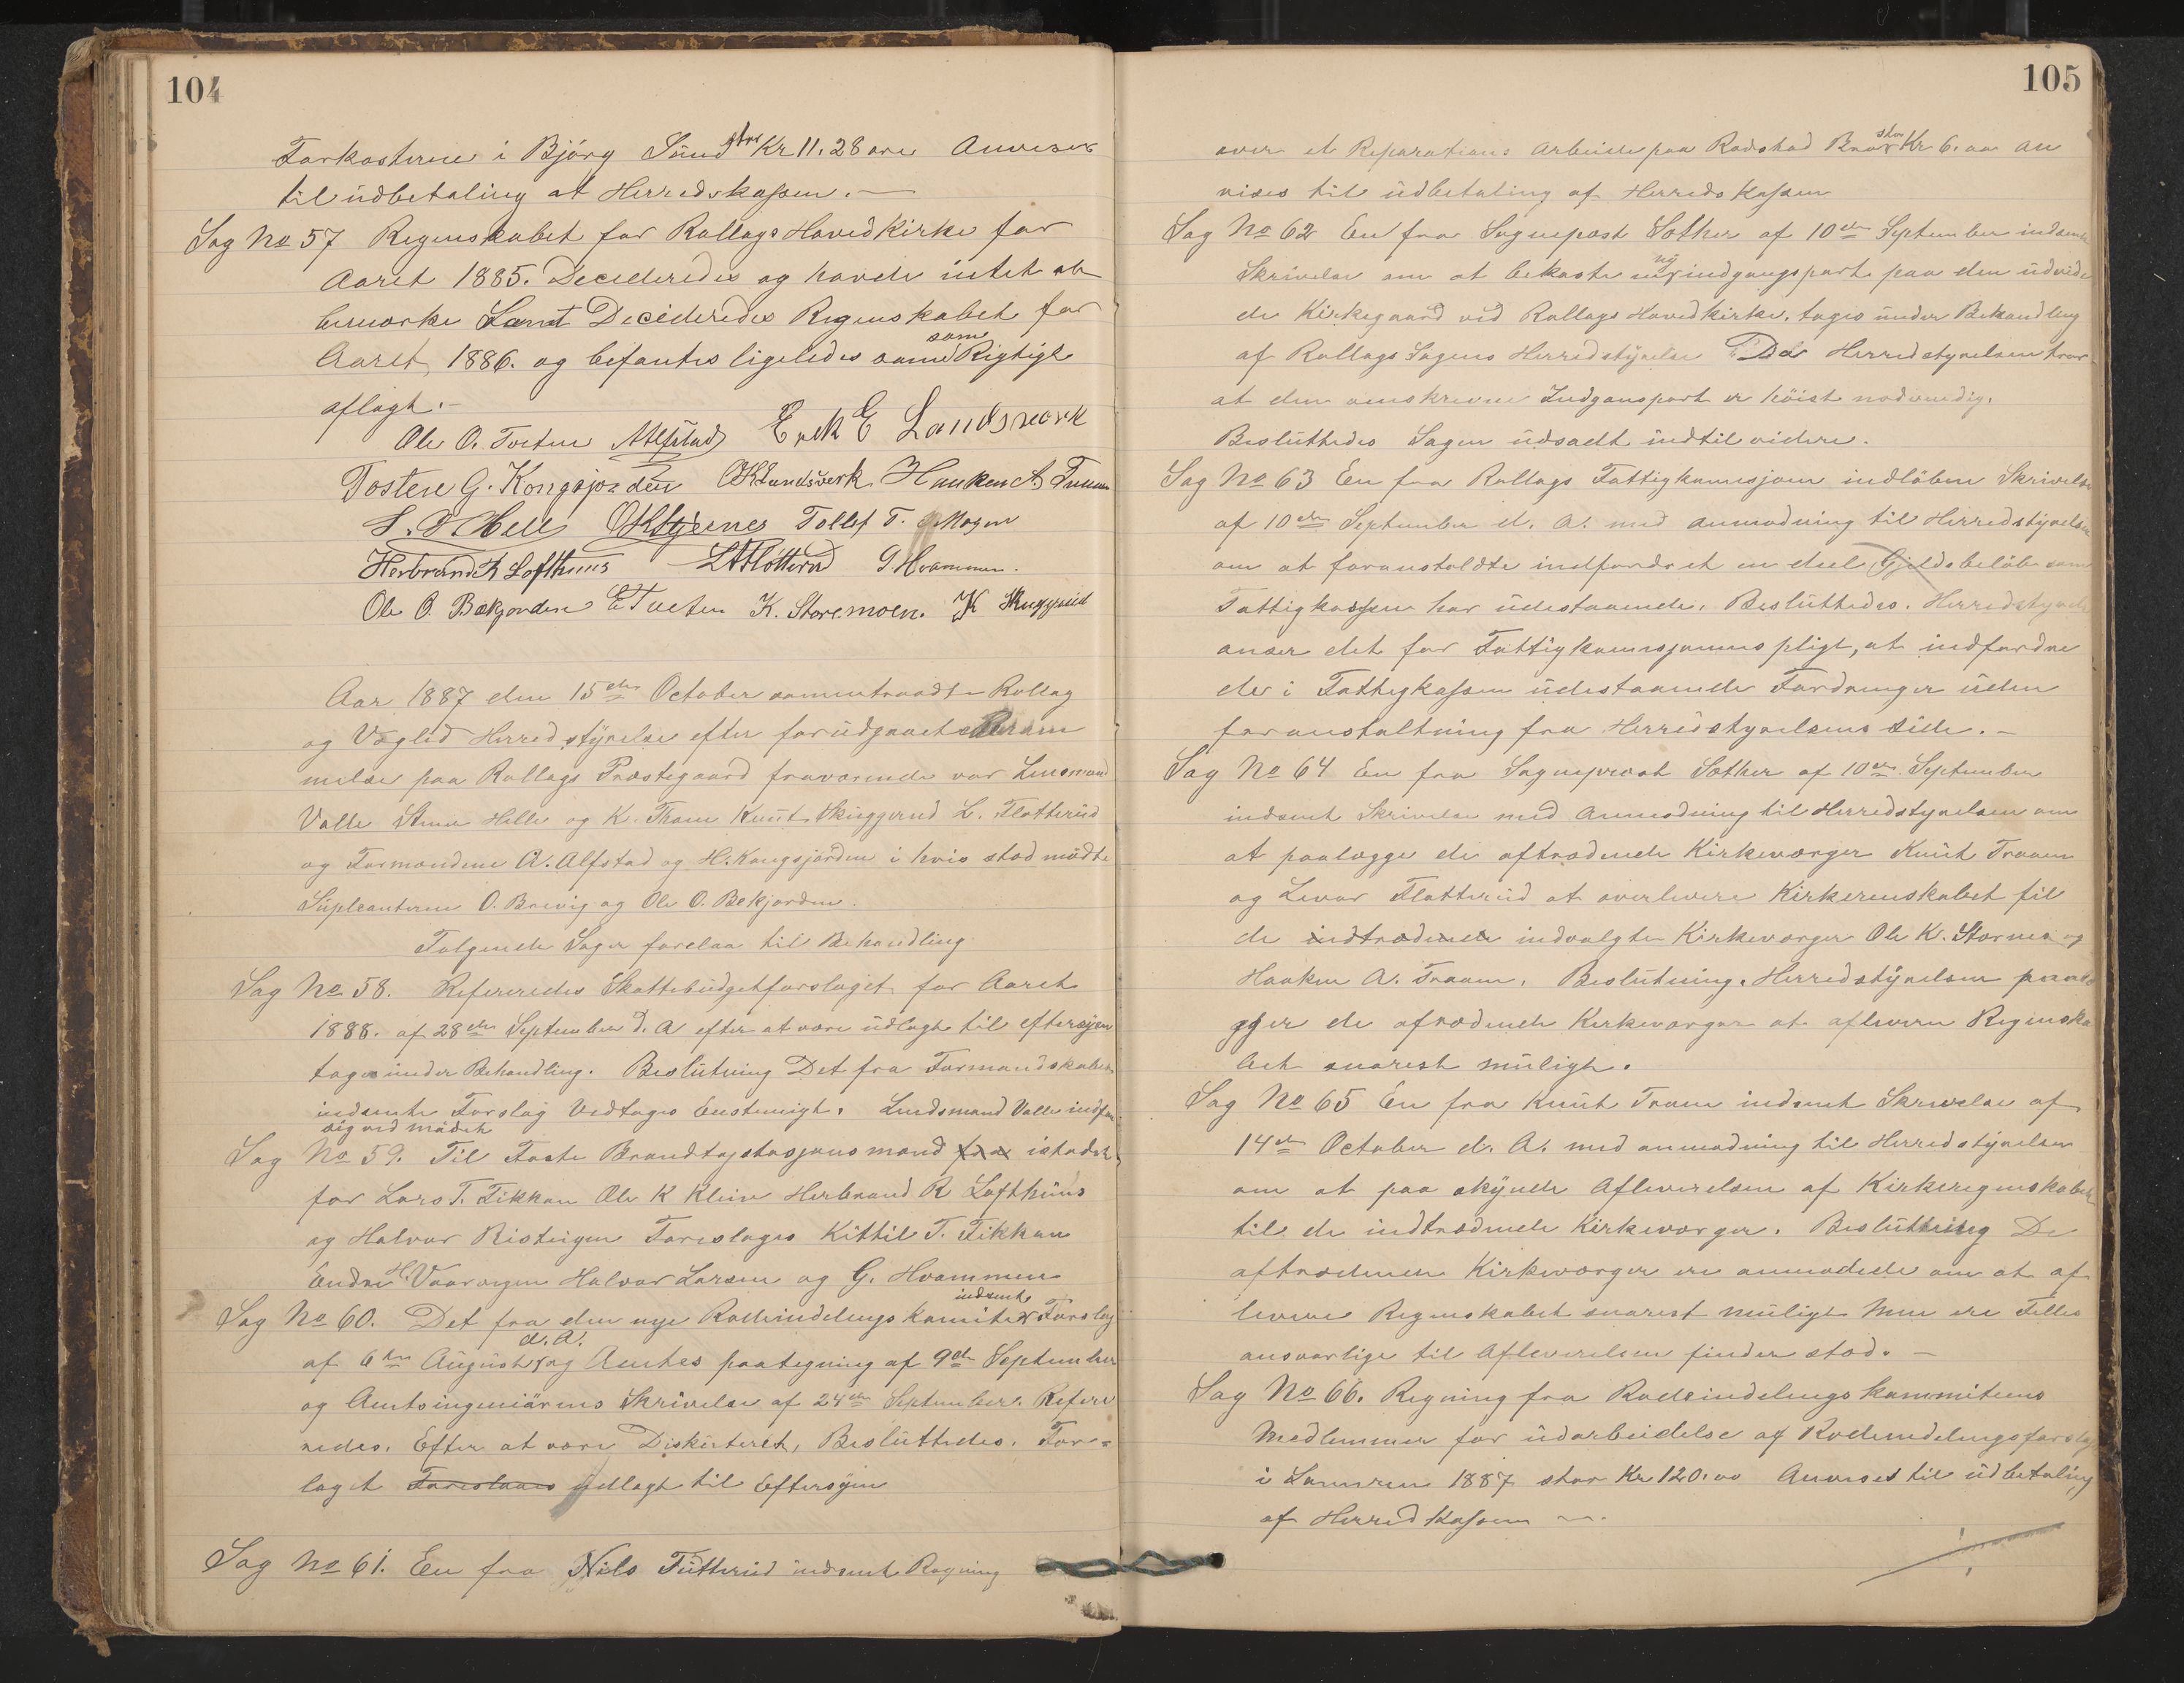 104
Farkosterne i Björg Sünd stor Kr 11.28 öre Anvises
til üdbetaling at Herredskassen. —
Sag No 57 Regenskabet for Rollags Hovedkirke for
Aaret 1885. Decideredes og havde intet at
bemærke Samt Decideredes Regenskabet for
Aaret 1886. og befantes ligeledes som Rigtigt
aflagt. —
Ole O. Tveten AAlfstad Erek E Landsverk
Tosten G. Kongsjorden OKLandsverk Haaken A. Traaen
S. T. Helle OKBjernes Tollef T. Mogen
Herbrand R Lofthuus LAFlötterud G Hvammen.
Ole O. Bekjorden E Tveten K. Storemoen. K Skuggrud
Aar 1887 den 15de October sammentraadte Rollag
og Vegled Herredstÿrelse efter forüdgaaet Beram
melse paa Rollags Præstegaard fraværende var Lensmand
Valle Stener Helle og K. Traaen Knüt Skuggerud L. Flotterüd
og Formændene A. Alfstad og H. Kongsjorden i hvis sted mödte
Süpleanterne O. Brevig og Ole O. Bekjorden.
Følgende Sager forelaa til Behandling
Sag No 58. Refereredes Skattebüdgetforslaget for Aaret
1888. af 28de September D. A efter at være üdlagt til eftersÿn
tages ünder Behandling. Beslütning Det fra Formandskabet
indsente Forslag Vedtages Enstemigt. Lendsmand Valle indfan
sig ved mödet
Sag No 59. Til Faste Brandtaxtasjons mænd for istedet
for Lars T. Fikkan Ole K Kleiv Herbrand R Lofthüus
og Halvor Risteigen Foreslages Kittil T. Fikkan
Endre H. Vaarvigen Halvor Larsen og G. Hvammen
Sag No 60. Det fra den nye Rodeindelings komite indsente Forslag
af 6te Aügüst d. A. og Amtes paategning af 9de September
og Amtsingeniörens Skrivelse af 24de September. Refere
redes. Efter at være Disküteret, Beslüttedes. Fors=
laget Foreslaaes üdlagt til Eftersÿn
Sag No 61. En fra Nils Tütterüd indsent Regning
105
over et Reparations Arbeide paa Rodstad Broor stor Kr 6.00 an
vises til üdbetaling af Herreds Kassen
Sag No 62 En fra Sognepræst Sæther af 10de September indsente
Skrivelse om at bekoste ny indgangsport paa den üdvide
de Kirkegaard ved Rollags Hovedkirke. tages ünder Behandling
af Rollags Sogens Herredstÿrelse Da Herredstyrelsen tror
at den omskrevne Indgangsport er höist nødvendig.
Beslüttedes Sagen üdsadt indtil videre.
Sag No 63 En fra Rollags Fattigkomisjon indlöben Skrivelse
af 10de September d. A. med anmodning til Herredstÿrelsen
om at foranstaldte indfordret en deel Gjeldsbelöb som
Fattigkassen har üdestaaende. Beslüttedes. Herredstyrelse
anser det for Fattigkomisjonens pligt, at indfordre
de i Fattigkassen üdestaaende Fordringer üden
foranstaltning fra Herredstyrelsens Side. —
Sag No 64 En fra Sogneprest Sæther af 10de September
indsent Skrivelse med Anmodning til Herredstyrelsen om
at paalægge de aftrædende Kirkeværger Knüt Traaen
og Levor Flatterüd at overlevere Kirkerenskabet til
de indtrædende indvalgte Kirkeværger Ole K. Stormo og
Haaken A. Traaen. Beslütning. Herredstÿrelsen paalæ
gger de aftrædende Kirkeværger at aflevere Regenska
bet snarest müligt.
Sag No 65 En fra Knüt Traaen indsent Skrivelse af
14de October d. A. med anmodning til Herredstÿrelsen
om at paa skÿnde Afleverelsen af Kirkeregenskabet
til de indtrædende Kirkeværger. Beslüttning De
aftrædende Kirkeværger ere anmodede om at af
levere Regenskabet snarest müligt Men ere Felles
ansvarlige til Afleverelsen finder sted. —
Sag No 66. Regning fra Rodeindelings kommitens
Medlemmer for üdarbeidelse af Rodeindelingsforslag
i Sommren 1887 stor Kr 120.00 Anvises til üdbetaling
af Herredkassen —.